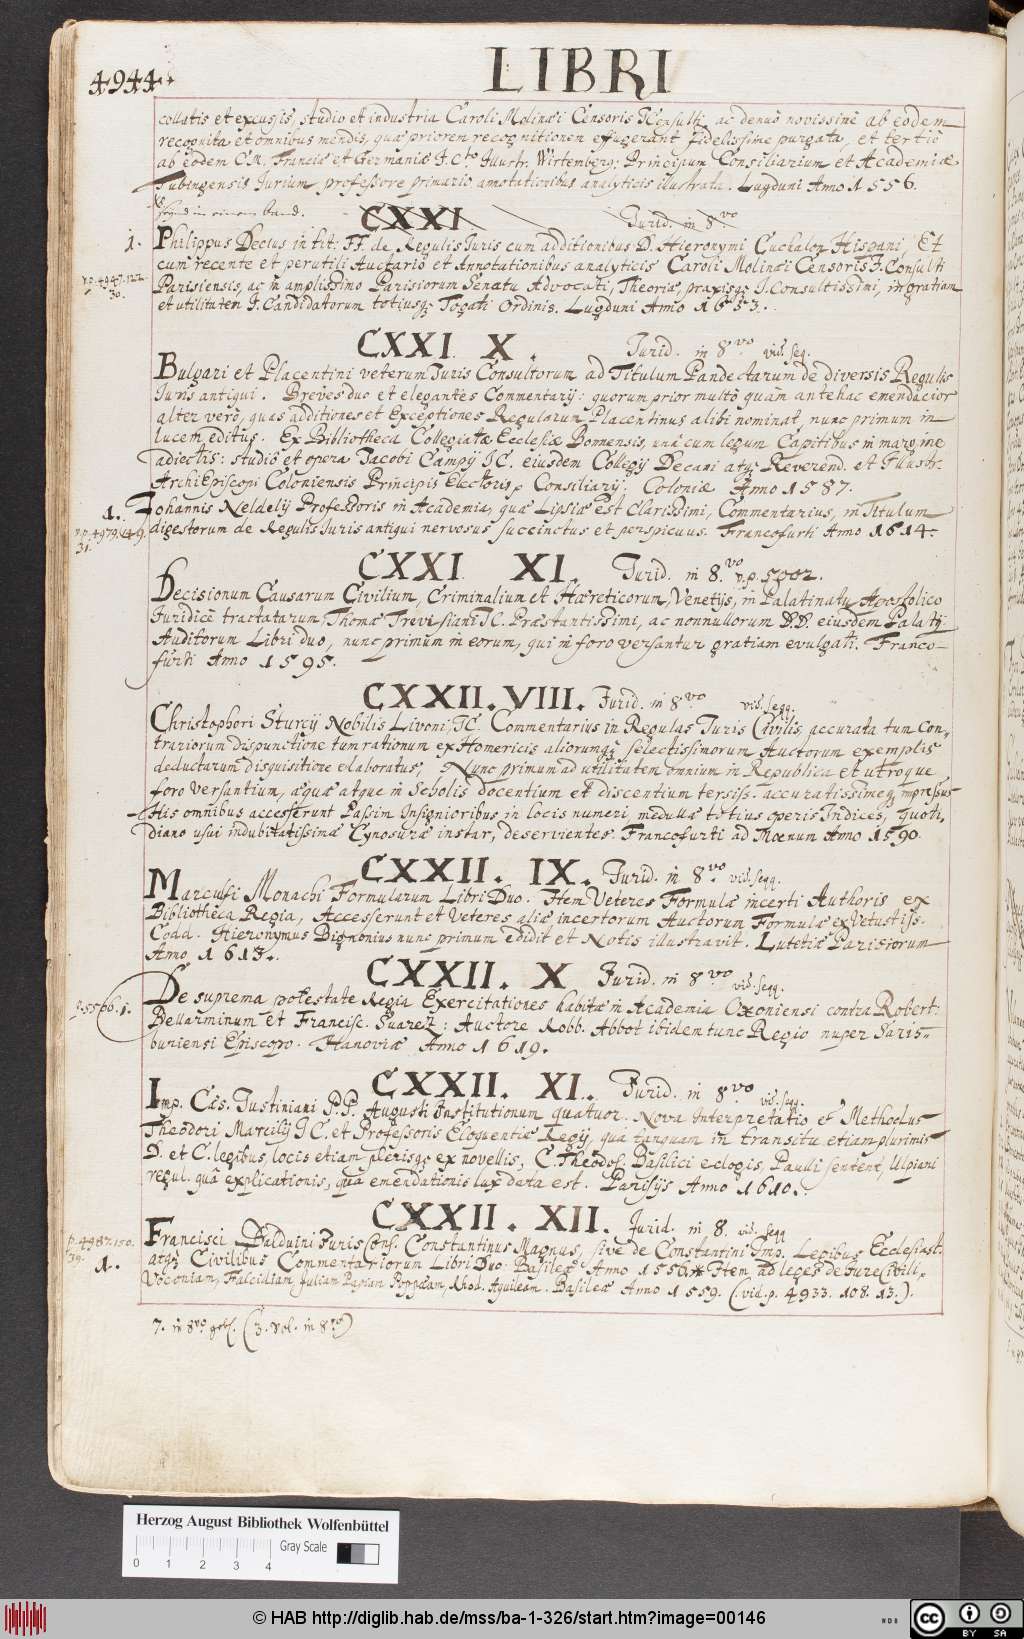 4944
LIBRI
collatis et excussis, studio et industria Caroli Molinæi Censoris ac denuò novissimè ab eodem
recognita et omnibus mendis, quæ priorem recognitionem effugerant fidelissime purgata, et tertiò
ab eodem C. M. Franciæ et Germaniæ J. Cto Illustr. Wirtemberg: Principum Consiliarium et Academiæ
Tubingensis Iurium, professore primario annotationibus analyticis illustrata. Lugduni Anno 1556.
CXXI Jurid. in 8.vo
1. Philippus Decius in tit: FF. de Regulis Juris cum additionibus D. Hieronymi Cuchalon Hispani, Et
cum recente et perutili Auctario et Annotationibus analyticis Caroli Molinæi Censoris J. Consulti
p. 4947. 122. 30. Parisiensis, ac in amplissimo Parisiorum Senatu Advocati, Theoriæ, praxisq; J. Consultissimi, in gratiam
et utilitatem J. Candidatorum totiusq; Togati Ordinis. Lugduni Anno 1553.
CXXI X. Jurid. in 8.vo vid. seq.
Bulgari et Placentini veterum Juris Consultorum ad Titulum Pandectarum de diversis Regulis
Juris antiqui. Breves duo et elegantes Commentarij: quorum prior multò quam antehac emendacior
alter verò, quas additiones et Exceptiones Regularum Placentinus alibi nominat, nunc primum in
lucem editus. Ex Bibliotheca Collegiatæ Ecclesiæ Bonnensis, unà cum legum Capitibus in margine
adiectis: studiô et opera Jacobi Campij JC. eiusdem Collegij Decani atq; Reverend. et Illustr.
ArchiEpiscopi Coloniensis Principis Electoris, Consiliarij. Coloniæ Anno 1587.
1. Johannis Neldelij Professoris in Academia, quæ Lipsiæ est Clarissimi, Commentarius, in Titulum
31. digestorum de Regulis Juris antiqui nervosus succinctus et perspicuus. Francofurti Anno 1614.
CXXI XI. Jurid. in 8.vo p. 5002.
Decisionum Causarum Civilium, Criminalium et Hæreticorum, Venetijs, in Palatinatu Apostolico
Juridicè tractatarum, Thomæ Trevisiani JC. Præstantissimi, ac nonnullorum DD. eiusdem Palatij
Auditorum Libri duo, nunc primùm in eorum, qui in foro versantur gratiam evulgati. Franco-
furti Anno 1595.
CXXII. VIII. Jurid. in 8.vo vid. seqq.
Christophori Sturcij Nobilis Livoni, JC. Commentarius in Regulas Juris Civilis, accurata tum Con-
trariorum dispunctione tum rationum ex Homericis aliorumq; selectissimorum Auctorum exemplis
deductarum disquisitione elaboratus, Nunc primum ad utilitatem omnium in Republica et utroque
foro versantium, æquæ atque in Scholis docentium et discentium tersiss. accuratissimeq; impressus
His omnibus accesserunt Passim Insignioribus in locis numeri, medullæ totius operis Indices, quoti-
diano usui indubitatissimæ Cynosuræ instar, deservientes. Francofurti ad Moenum Anno 1590.
CXXII. IX. Jurid. in 8.vo vid. seqq.
Marculfi Monachi Formularum Libri Duo. Item Veteres Formulæ incerti Authoris ex
Bibliotheca Regia, Accesserunt et Veteres aliæ incertorum Auctorum Formulæ ex Vetustiss.
Codd. Hieronymus Bignonius nunc primum edidit et Notis illustravit. Lutetiæ Parisiorum
Anno 1613.
CXXII. X Jurid. in 8.vo vid. seqq.
p. 5566. 1. De suprema potestate Regia Exercitationes habitæ in Academia Oxoniensi contra Robert:
Bellarminum et Francisc. Suarez: Auctore Robb. Abbot ibidem tunc Regio nuper Saris-
buriensi Episcopo. Hanoviæ Anno 1619.
CXXII. XI. Jurid. in 8.vo vid. seqq.
Imp. Cæs. Justiniani P.P. Augusti Institutionum quatuor. Nova Interpretatio & Methodus
Theodori Marcilij JC. et Professoris Eloquentiæ Regij, qua tanquam in transitu etiam plurimis
D. et C. legibus, locis etiam plerisq; ex novellis, C. Theodos. Basilici eclogis, Paulli sentent, Ulpiani
regul. quâ explicationis, quâ emendationis lux data est. Parisijs Anno 1610.
CXXII. XII. Jurid. in 8. vid. seqq
p. 4987. 150. 39. Francisci Balduini Juris Cons. Constantinus Magnus, sive de Constantini Imp. Legibus Ecclesiast.
1. atq; Civilibus Commentariorum Libri Duo. Basileæ Anno 1556. * Item ad leges de Jure Civili,
Voconiam, Falcidiam Juliam Papiam Poppæam, Rhod. Aquileam. Basileæ Anno 1559. (vid. p. 4933. 108. 13.).
7. in 8vo (3. vol. in 8vo)
Herzog August Bibliothek Wolfenbüttel
Gray Scale
0 1 2 3 4
© HAB http://diglib.hab.de/mss/ba-1-326/start.htm?image=00146
WDB
cc BY SA